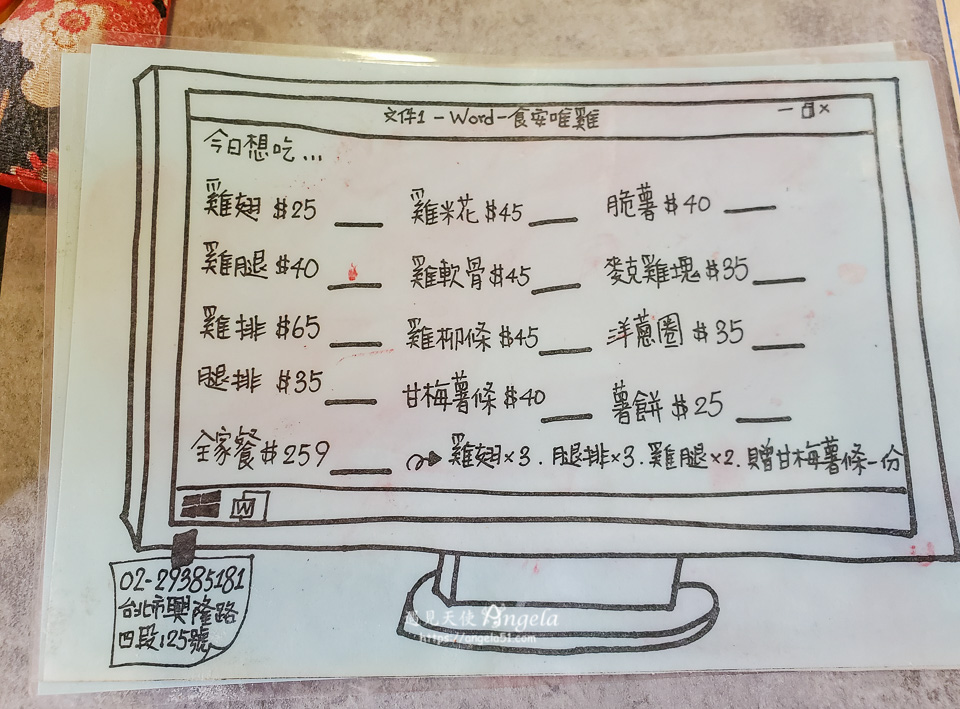 文件1-Word-食安唯雞
今日想吃...
雞翅 $25 ___ 雞米花 $45 ___ 脆薯 $40 ___
雞腿 $40 ___ 雞軟骨 $45 ___ 麥克雞塊 $35 ___
雞排 $65 ___ 雞柳條 $45 ___ 洋蔥圈 $35 ___
腿排 $35 ___ 甘梅薯條 $40 ___ 薯餅 $25 ___
全家餐 $259 ___ 雞翅×3.腿排×3.雞腿×2.贈甘梅薯條一份
W
02-29385181
台北市興隆路
四段125號
遇見天使 Angela
https://angela51.com